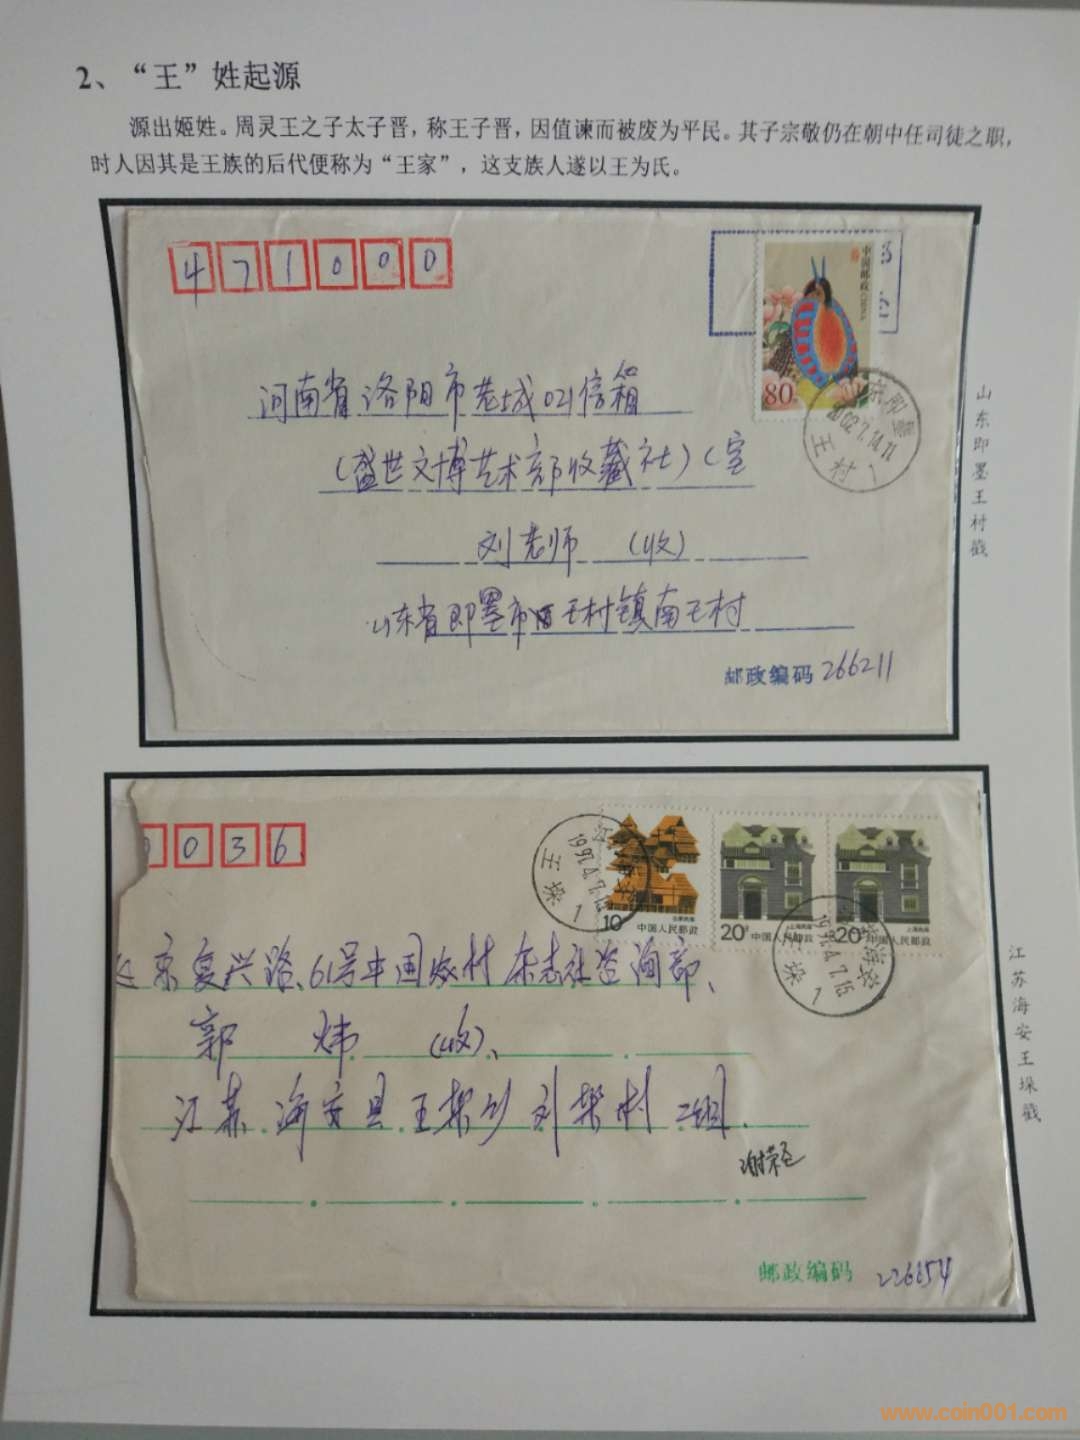 2、“王”姓起源
源出姬姓。周灵王之子太子晋，称王子晋，因值谏而被废为平民。其子宗敬仍在朝中任司徒之职，
时人因其是王族的后代便称为“王家”，这支族人遂以王为氏。
471000
中国邮政 CHINA
80
2002.7.14.11
王村
河南省洛阳市老城021信箱
(盛世文博艺术部收藏社)(室
刘老师 (收)
山东省即墨市王村镇南王村
邮政编码 266211
山东即墨王村戳
0036
10
中国人民邮政
20
中国人民邮政
20
中国人民邮政
王垛
1
王垛
1
京复兴路、61号中国农村杂志社咨询部、
郭炜 (收)、
江苏.海安县.王垛乡刘垛村二组.
谢荣
邮政编码 226654
江苏海安王垛戳
www.coin001.com